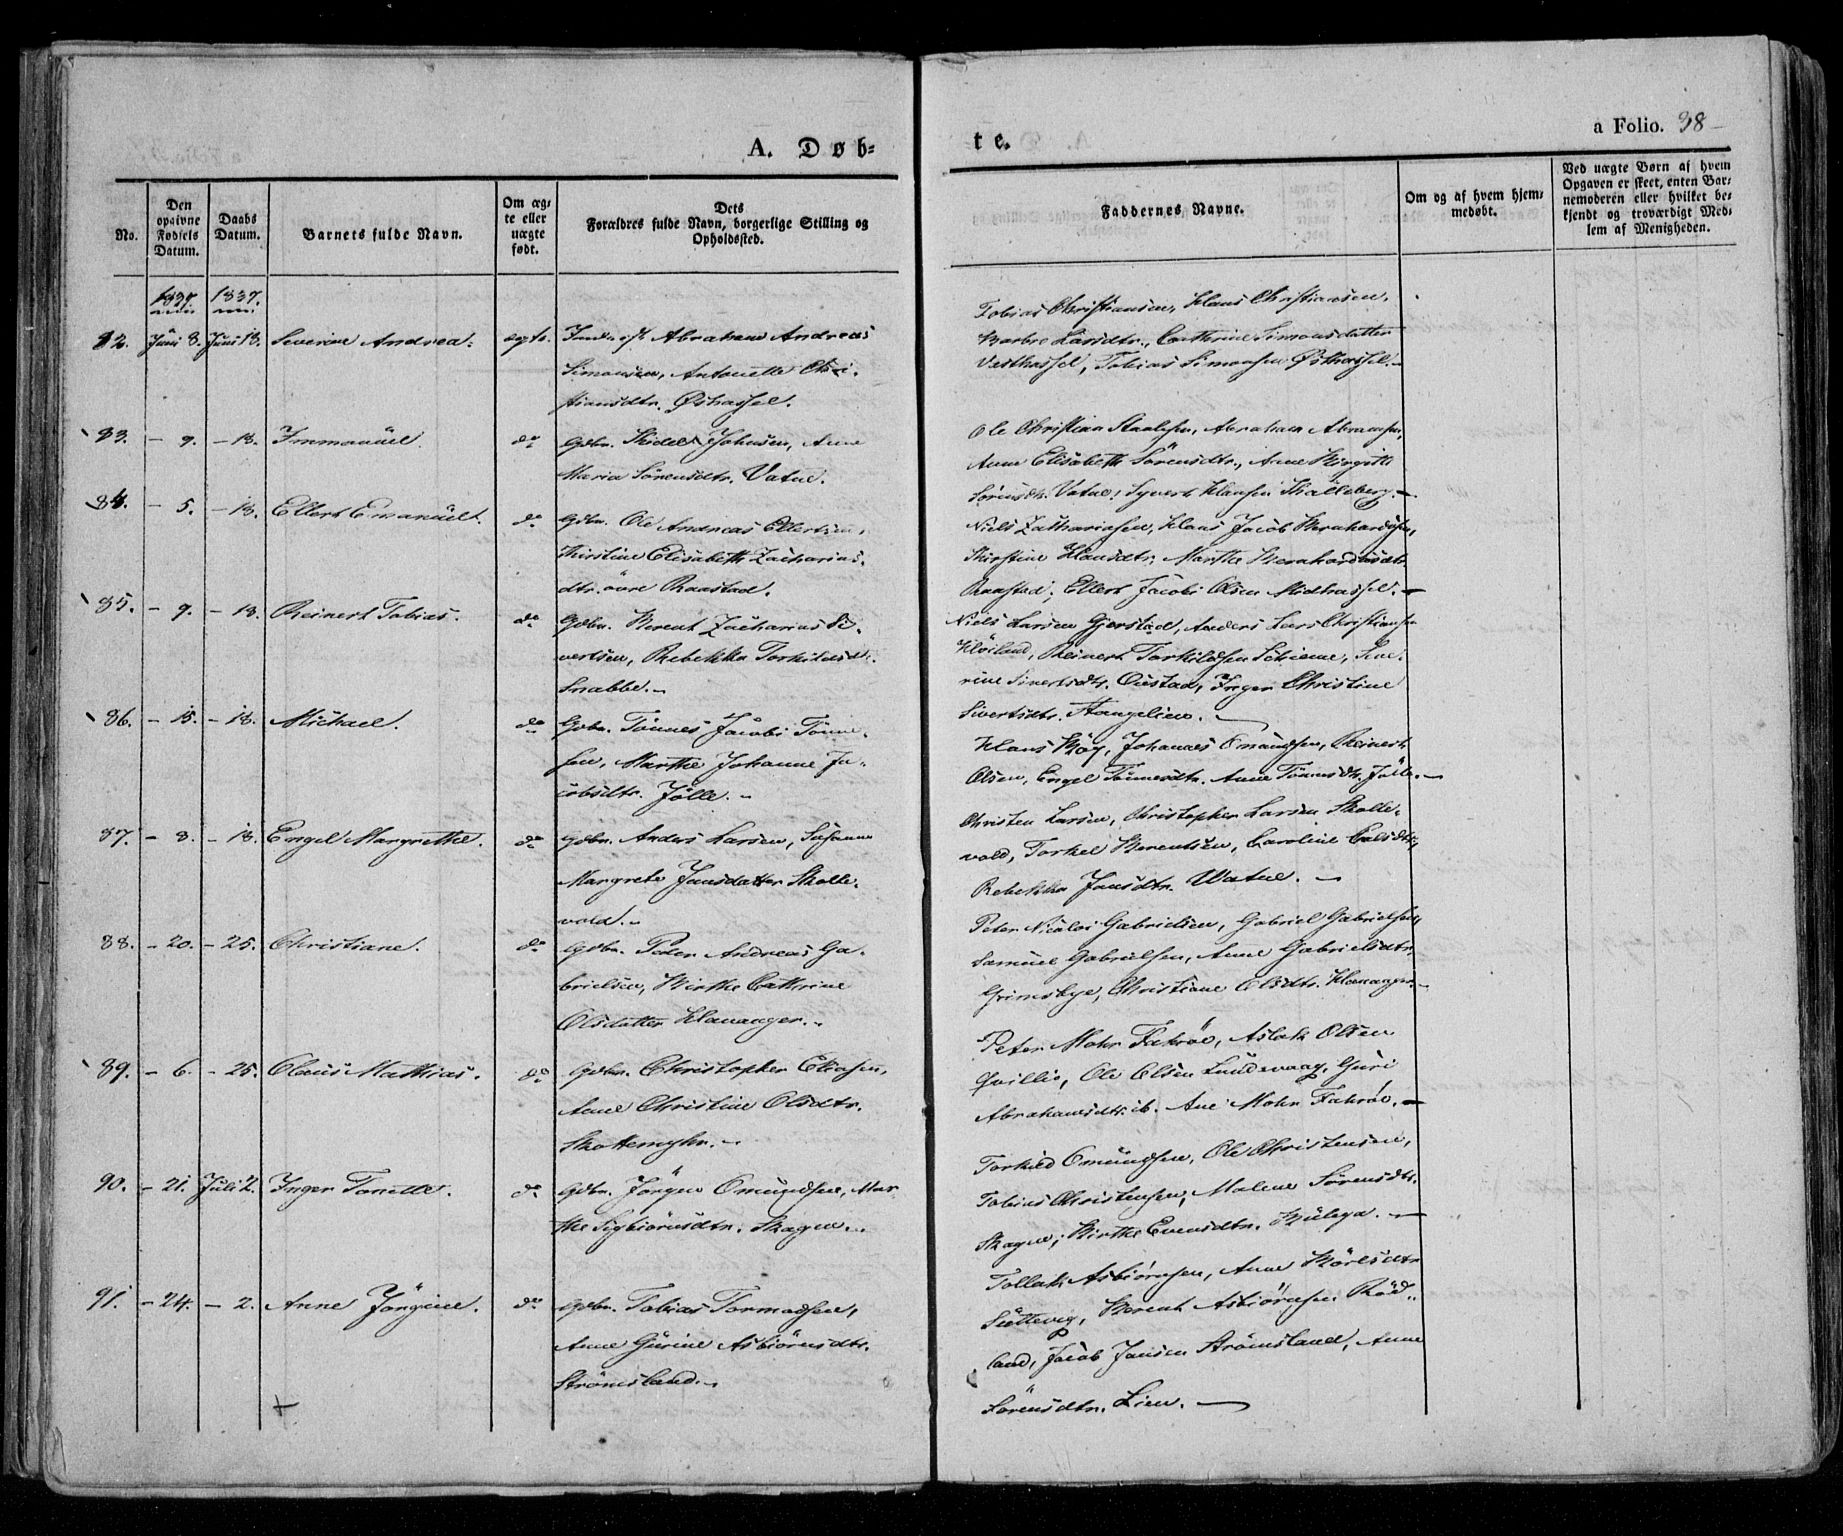 A. Døb-
te.
a Folio. 38
No.
Den opgivne Fødsels Datum.
Daabs Datum.
Barnets fulde Navn.
Om ægte eller uægte født.
Dets
Forældres fulde Navn, borgerlige Stilling og
Opholdssted.
Faddernes Navne.
Om og af hvem hjem-
medøbt.
Ved uægte Børn af hvem
Opgaven er skeet, enten Bar-
nemoderen eller hvilket be-
kjendt og troværdigt Med-
lem af Menigheden.
1837. 1837.
82. Juni 8. Juni 18. Severine Andrea. egte. Abraham Andreas
Simonsen, Antonette Chri-
stiansdtr. Østhassel.
Tobias Christiansen, Hans Christiansen,
Barbro Larsdtr., Cathrine Simonsdatter
Vesthassel, Tobias Simonsen Østhassel.
83. - 9. - 18. Immanüel. do Gdbr. Johnsen, Anne
Maria Sörensdtr. Vatne.
Ole Christian Staalesen, Abraham Abramsen,
Anne Elisabeth Sörensdtr., Anne Birgitte
Sörensdtr. Vatne, Syvert Hansen
84. - 5. - 18. Ellert Emanüel. do Gdbr. Ole Andreas Ellertsen,
Kirstine Elisabeth Zacharias-
dtr. övre Raastad.
Niels Zachariasen, Hans Jacob Bernhardsen,
Kirstine Hansdtr. Marthe Bernhardsdtr.
Raastad; Ellert Jacob Olsen Midthassel.
85. - 9. - 18. Reinert Tobias. do Gdbr. Berent Zacharias Si-
vertsen, Rebekka Torkildsdtr.
Snabbe.
Niels Larsen Gjerstad, Anders Lars Christiansen
Reinert Torkildsen Seve-
rine Sivertsdtr. Oustad, Inger Christine
Sivertsdtr. Stangelien.
86. - 15. - 18. Michael. do Gdbr. Tönnes Jacob Tönne-
sen, Marthe Johanne Ja-
cobsdtr. Jölle.
Hans Bög, Johannes Omündsen, Reinert
Olsen, Engel Tönnesdtr. Anne Tönnesdtr. Jölle.
87. - 8. - 18. Engel Margrethe. do Gdbr. Anders Larsen, Susanne
Margrete Jansdatter Skolle-
vold.
Christen Larsen, Christopher Larsen Skolle-
vold, Torkel Berentsen, Caroline
Rebekka Jansdtr. Watne.
88. - 20. - 25. Christiane. do Gdbr. Peder Andreas Ga-
brielsen, Birthe Cathrine
Olsdatter Hananger.
Peter Nicolai Gabrielsen, Gabriel Gabrielsen,
Samuel Gabrielsen, Anne Gabrielsdtr.
Grimsbye, Christiane Olsdtr. Hananger.
89. - 6. - 25. Olaüs Mathias. do Gdbr. Christopher Eliasen,
Anne Christine Olsdtr.
Skottemyhr.
Peter Mohr Fahröe, Aslak Olsen
Qvillio, Ole Olsen Lundevaag, Guri
Abrahamsdtr. ib. Ane Mohr Fahröe.
90. - 21. Juli 2. Inger Tonette. do Gdbr. Jörgen Omundsen, Mar-
the Sigbiörnsdtr. Skagen.
Torkild Omündsen, Ole Christensen,
Tobias Christensen, Malene Sörensdtr.
Skagen; Birthe Evensdtr.
91. - 24. - 2. Anne Jörgine. do Gdbr. Tobias Tormodsen,
Anne Gurine Asbiörnsdtr.
Strömsland.
Tollak Asbiörnsen, Anne Börlsdtr.
Berent Asbiörnsen Röd-
land, Jacob Jansen Strömsland, Anne
Sörensdtr. Lien.